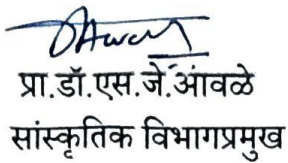 प्रा.डॉ.एस.जे.आंवळे
सांस्कृतिक विभागप्रमुख